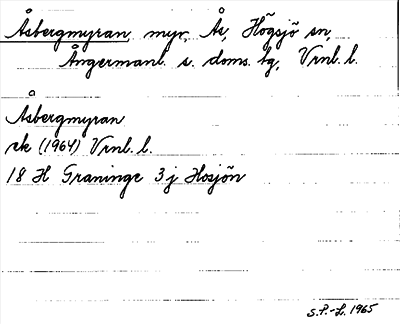 Åsbergmyran, myr, Ås, Högsjö sn,
Ångermanl. s. doms. tg, Vrnl. l.
Åsbergmyran
ek (1964) Vrnl. l.
18 H Graninge 3 j Hosjön
S.P.-L. 1965